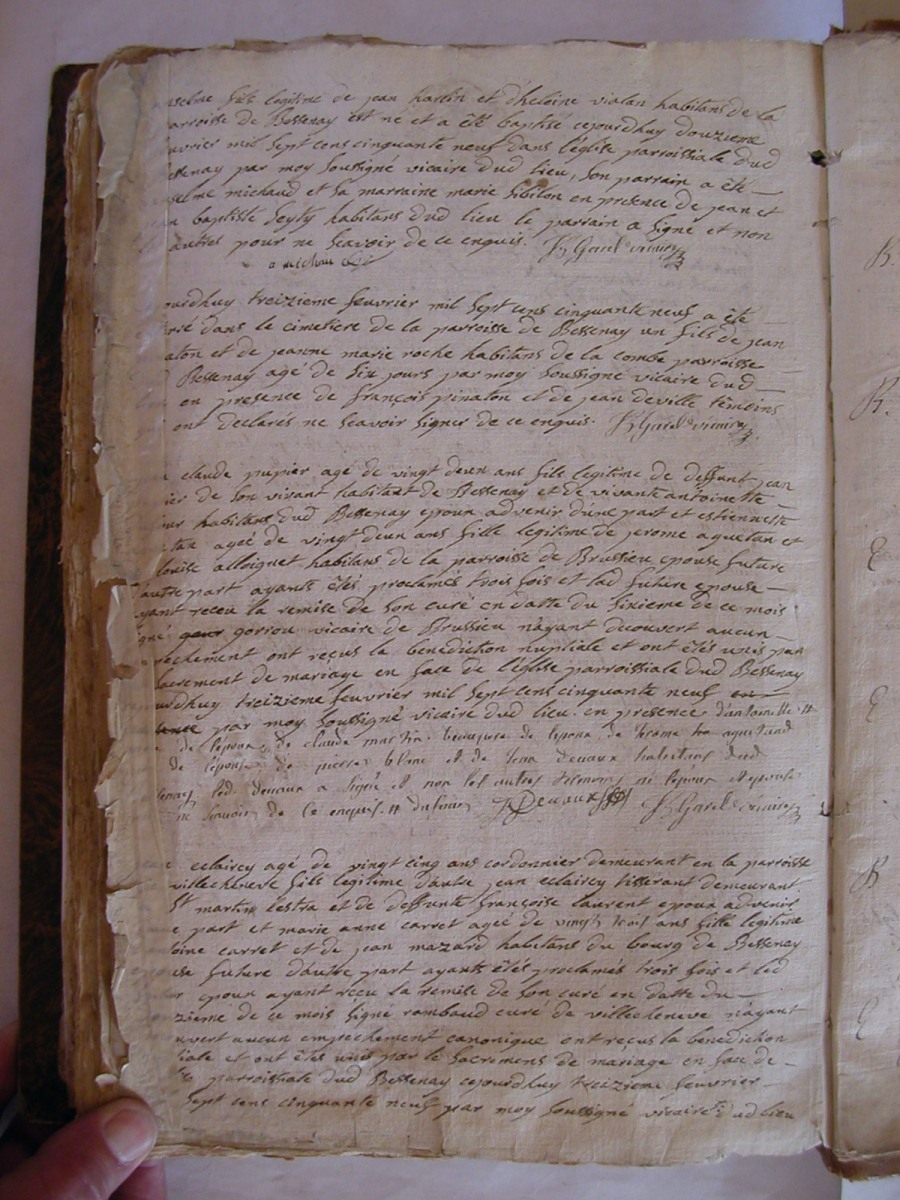 fils legitime de jean hartin et d'heleine vialan habitans de la
parroisse de Bessenay est né et a été baptisé cejourdhuy douzieme
mil sept cens cinquante neuf dans l'église parroissiale dud
par moy soussigné vicaire dud lieu, son parrain a été
michaud et sa marraine marie sibilon en presence de jean et
baptiste habitans dud lieu le parrain a signé et non
autres pour ne scavoir de ce enquis. Garel vicaire
a michau
treizieme fevrier mil sept cens cinquante neuf a été
dans le cimetiere de la parroisse de Bessenay un fils de jean
et de jeanne marie roche habitans de la combe parroisse
Bessenay agé de six jours par moy soussigné vicaire dud
en presence de françois pinaton et de jean deville témoins
ont declarés ne scavoir signer de ce enquis. Garel vicaire
claude pupier agé de vingt deux ans fils legitime de deffunt jean
de son vivant habitant de Bessenay et de vivante antoinette
habitans dud Bessenay epoux advenir d'une part et estiennette
agée de vingt deux ans fille legitime de jerome aguetan et
alloignet habitans de la parroisse de Brussieu epouse future
d'autre part ayants étés proclamés trois fois et lad future epouse
ayant receu la remise de son curé en datte du sixieme de ce mois
gorrou vicaire de Brussieu n'ayant decouvert aucun
ont reçus la bénédiction nuptiale et ont étés unis par
sacrement de mariage en face de l'église parroissiale dud Bessenay
treizieme fevrier mil sept cens cinquante neuf en
par moy soussigné vicaire dud lieu. en presence d'antoinette
de l'epoux, de claude martin de l'epoux, de aguetand
de l'epouse de pierre blanc et de devaux habitans dud
led. devaux a signé et non les autres temoins ni l'epoux et epouse
ne scavoir de ce enquis. Devaux Garel vicaire
eclaircy agé de vingt cinq ans cordonnier demeurant en la parroisse
villecheneve fils legitime d'autre jean eclaircy tisserant demeurant
St martin lestra et de deffunte françoise laurent epoux advenir
part et marie anne carret agée de vingt trois ans fille legitime
carret et de jean mazard habitans du bourg de Bessenay
future d'autre part ayants étés proclamés trois fois et led
epoux ayant receu la remise de son curé en datte du
de ce mois signé rombaud curé de villecheneve n'ayant
aucun empechement canonique ont reçus la benediction
et ont étés unis par le sacrement de mariage en face de
parroissiale dud Bessenay cejourdhuy treizieme fevrier
sept cens cinquante neuf par moy soussigné vicaire dud lieu